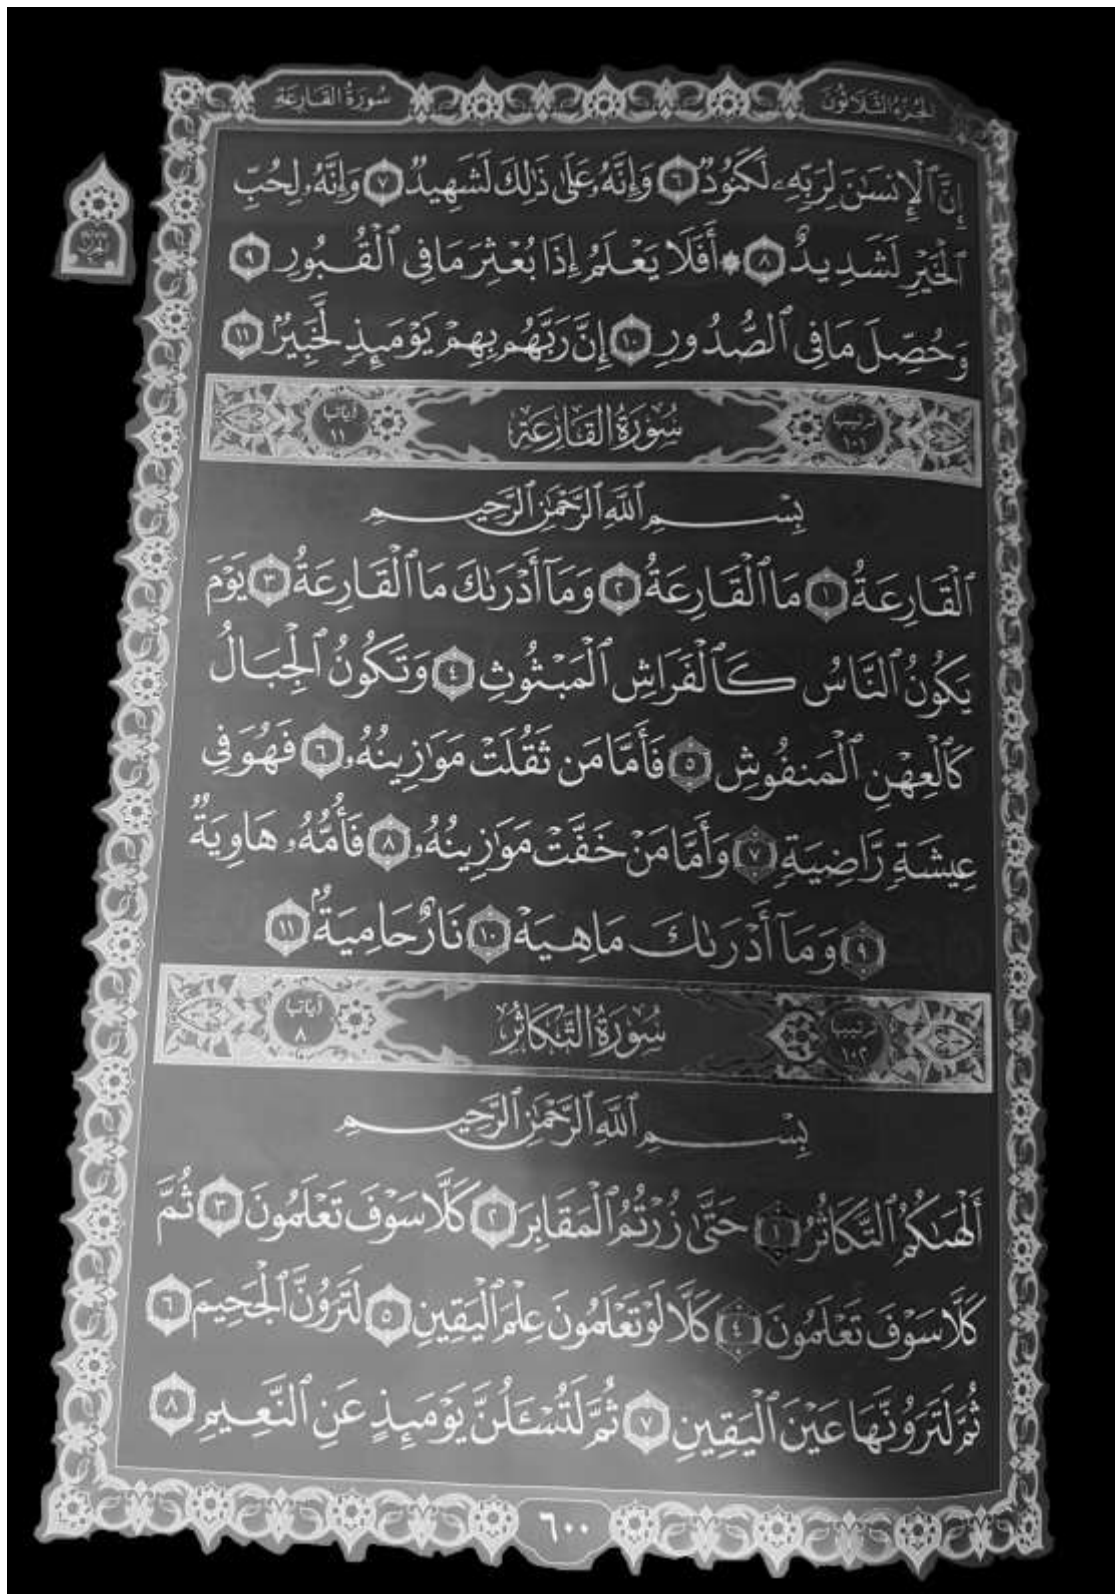 الجزء الثلاثون
سورة القارعة
إِنَّ ٱلْإِنسَٰنَ لِرَبِّهِۦ لَكَنُودٌ ٦ وَإِنَّهُۥ عَلَىٰ ذَٰلِكَ لَشَهِيدٌ ٧ وَإِنَّهُۥ لِحُبِّ
ٱلْخَيْرِ لَشَدِيدٌ ٨ ۞ أَفَلَا يَعْلَمُ إِذَا بُعْثِرَ مَا فِى ٱلْقُبُورِ ٩
وَحُصِّلَ مَا فِى ٱلصُّدُورِ ١٠ إِنَّ رَبَّهُم بِهِمْ يَوْمَئِذٍ لَّخَبِيرٌۢ ١١
ترتيبها ١٠١ سُورَةُ القَارِعَة آياتها ١١
بِسْمِ ٱللَّهِ ٱلرَّحْمَٰنِ ٱلرَّحِيمِ
ٱلْقَارِعَةُ ١ مَا ٱلْقَارِعَةُ ٢ وَمَآ أَدْرَىٰكَ مَا ٱلْقَارِعَةُ ٣ يَوْمَ
يَكُونُ ٱلنَّاسُ كَٱلْفَرَاشِ ٱلْمَبْثُوثِ ٤ وَتَكُونُ ٱلْجِبَالُ
كَٱلْعِهْنِ ٱلْمَنفُوشِ ٥ فَأَمَّا مَن ثَقُلَتْ مَوَٰزِينُهُۥ ٦ فَهُوَ فِى
عِيشَةٍ رَّاضِيَةٍ ٧ وَأَمَّا مَنْ خَفَّتْ مَوَٰزِينُهُۥ ٨ فَأُمُّهُۥ هَاوِيَةٌ
٩ وَمَآ أَدْرَىٰكَ مَا هِيَهْ ١٠ نَارٌ حَامِيَةٌۢ ١١
ترتيبها ١٠٢ سُورَةُ التَّكَاثُر آياتها ٨
بِسْمِ ٱللَّهِ ٱلرَّحْمَٰنِ ٱلرَّحِيمِ
أَلْهَىٰكُمُ ٱلتَّكَاثُرُ ١ حَتَّىٰ زُرْتُمُ ٱلْمَقَابِرَ ٢ كَلَّا سَوْفَ تَعْلَمُونَ ٣ ثُمَّ
كَلَّا سَوْفَ تَعْلَمُونَ ٤ كَلَّا لَوْ تَعْلَمُونَ عِلْمَ ٱلْيَقِينِ ٥ لَتَرَوُنَّ ٱلْجَحِيمَ ٦
ثُمَّ لَتَرَوُنَّهَا عَيْنَ ٱلْيَقِينِ ٧ ثُمَّ لَتُسْـَٔلُنَّ يَوْمَئِذٍ عَنِ ٱلنَّعِيمِ ٨
٦٠٠